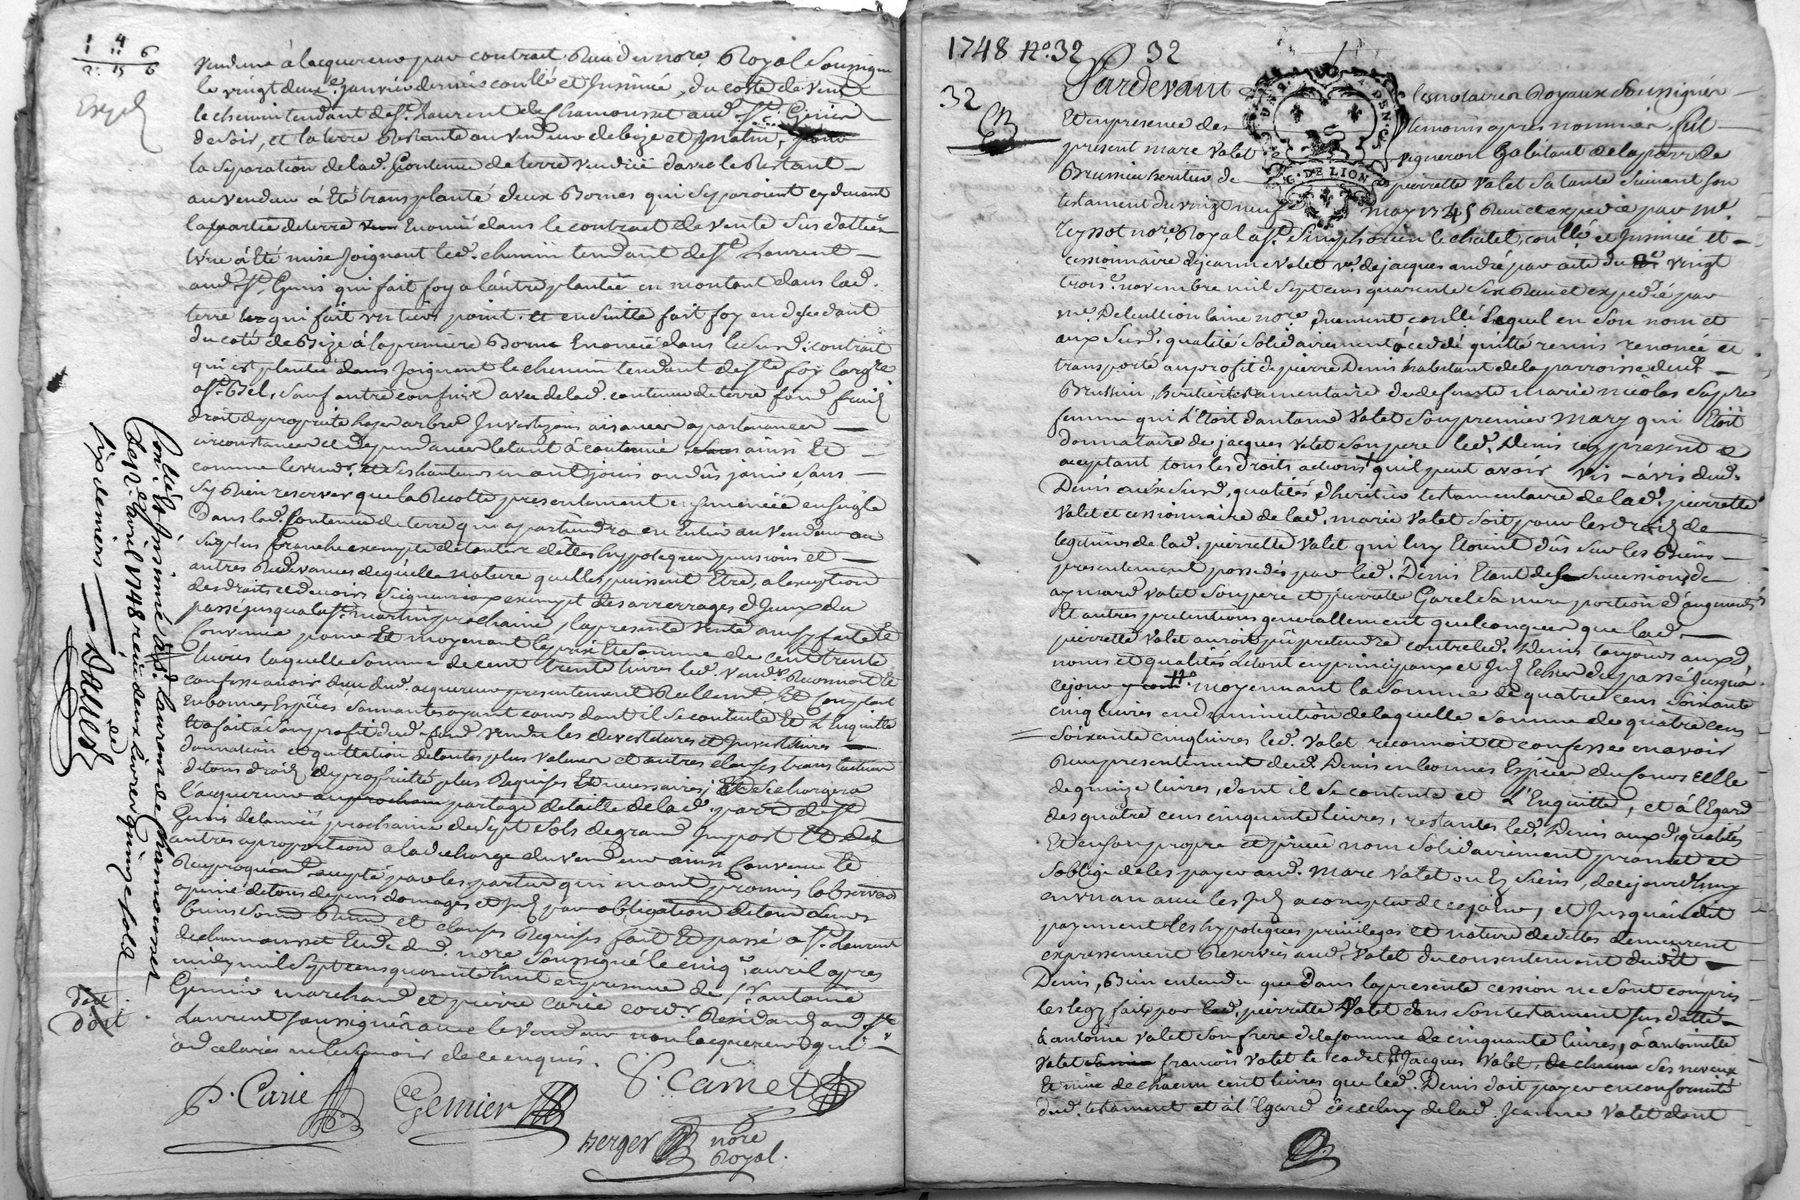 1 4 6
2 15 6
Exped
vendeur à lacquereur par contrat Receu du nore Royal Soussigné
le vingt deuxe janvier dernier coullé et Insinué, du costé de vent
le chemin tendant de St Laurent de Chamousset aud. St Genis
de soir, et la terre Restante au vendeur de bize et matin, pour
la Separation de lad. Contenue de terre vendue davec le Restant
au vendeur à été transplanté deux Bornes qui Separoient cy devant
la partie de terre Enoncé dans le contract de vente Sus datté
lune à été mise Joignant led. chemin tendant de St Laurent
aud. St Genis qui fait foy a lautre plantée en montant dans lad.
terre qui fait un tiers point. et en suitte fait foy en descendant
du coté de Bize à la premiere Borne Enoncée dans le susd. contract
qui est plantée dans Joignant le chemin tendant de Ste foy largre
a St Bel, Sauf autre confins avec de lad. contenue de terre fond fruits
droit de proprieté hayes arbres Investizons aisances apartenances
circonstances et dependances letant à contenué ainsi Et
comme le vendr. et Ses hauteurs en ont joui ou dûs jouir, Sans
sy Rien reserver que la Recolte presentement ensemencée en seigle
Dans lad. Contenue de terre qui apartiendra en Entier au vendeur au
Surplus franche exempte de toutes dettes hypoteques pensions et
autres Redevances de quelle nature quelles puissent Etre, a lexeption
des droits et devoirs Seigneuriaux exempt des arrerages dIceux du
passé jusqua la St martin prochaine, la presente vente ainsy faite Et
Convenue pour Et moyenant le prix Et somme de Cent trente
livres laquelle Somme de cent trente livres led. vendr. Reconnoit Et
confesse avoir Receu dud. acquereur presentement Réellemt. Et Comptant
En bonnes Espèces Sonnantes ayant cours dont il Se contente Et L'Enquitte
Et a fait à Son profit dud. fond vendu les devestitures et Investitures
donnation et quittation de toutes plus values et autres clauses translatives
de tous droits de proprieté plus Requises Et necessaires, Et Se chargera
lacquereur au prochain partage de taille de lad. parr. de St
Genis de lannée prochaine de Sept Sols de grand Impost Et des
autres a proportion a la decharge du vendeur ainsi Convenu Et
Reciproquemt. accepté par les parties qui en ont promis lobservation
a peine de tous depens domages et Inths par obligation de tous Leurs
biens Soumi. Renon. et clauses Requises fait Et passé a St. Laurent
de chamousset Etude dud. nore Soussigné le cinqe. avril apres
midy mil Sept cens quarante huit en presence de Sr. antoine
Genier marchand et pierre Carie cordr. Residands aud. St.
Laurent Soussignés avec le vendeur non lacquereur qui
a declaré ne le Scavoir de ce enquis.
P. Carie
Genier
P. Carriet
Berger nore
Royal.
Collé & Insinué à St. Laurent de Chamousset
Le 12e. avril 1748 reçu deux livres quinze sols
six deniers
Daned
doit
doit
1748 No. 32 32
32
Pardevant les notaires Royaux Soussignés
Et en presence des temoins apres nommés, fut
present marc Valet vigneron habitant de la parr. de
Brussieu heritier de pierrette Valet Sa tante Suivant Son
testament du vingt neuf may 1745 Receu et expedié par Me.
Teyssot nore. Royal a St. Simphorien le chatel, coullé et Insinué et
cessionnaire de jeanne Valet ve. de jacques andré par acte du vingt
trois. novembre mil Sept cens quarante Six Receu et expedié par
Me. Delullion laine nore. duement coullé Lequel en Son nom et
aux Susd. qualité Solidairement à cedé quitté remis renoncé et
transporté au profit de pierre Denis habitant de la parroisse dud.
Brussieu, heritier testamentaire de defunte marie nicolas Sa pre.
femme qui L'Etoit dantoine Valet Son premier Mary qui Etoit
donnataire de jacques Valet Son pere led. Denis icy present et
aceptant tous les droits actions quil peut avoir Vis-à-vis dud.
Denis aux Susd. qualités d'heritier testamentaire de lad. pierrette
Valet et cessionnaire de lad. marie Valet Soit pour les droits de
legitimes de lad. pierrette Valet qui luy Etoient dûs Sur les Biens
presentement possedés par led. Denis Etant de la Succession de
aymard Valet Son pere et pierrette Garel Sa mere portion d'augment
Et autres pretentions generallement quelconques que lad.
pierrette Valet auroit pû pretendre contre led. Denis toujours auxd.
noms et qualités Letout en principaux et Inths Echus du passé Jusqua
ce jour moyennant la Somme de quatre cens Soixante
cinq livres en diminution de laquelle Somme de quatre cens
Soixante cinq livres led. Valet reconnoit et confesse en avoir
Receu presentement dud. Denis en bonnes Espèces du Cours celle
de quinze livres, dont il Se contente et L'Enquitte, et à lEgard
des quatre cens cinquante livres, restantes led. Denis auxd. qualités
Et en son propre et privé nom Solidairement promet et
Soblige de les payer aud. Marc Valet ou Es Siens, de cejourdhuy
en un an avec les Inths a compter de ce jour, et Jusquau dit
payement les hypoteques privileges et nature de dettes demeurent
expressement Reservés aud. Valet du consentement dudit
Denis, Bien entendu que dans la presente cession ne Sont compris
les legs faits par lad. pierrette Valet dans Son testament Sus datté
à antoine Valet Son frere de la Somme de cinquante livres, à antoinette
Valet francois Valet le cadet & Jacques Valet, Ses neveux
Et niece de chacun cent livres que led. Denis doit payer en conformité
dud. testament et à l'Egard de celuy de lad. Jeanne Valet dont